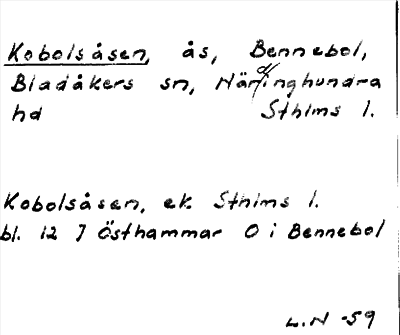 Kobolsåsen, ås, Bennebol,
Bladåkers sn, Närdinghundra
hd Sthlms l.
Kobolsåsen, ek. Sthlms l.
bl. 12 J Östhammar O i Bennebol
L.N -59